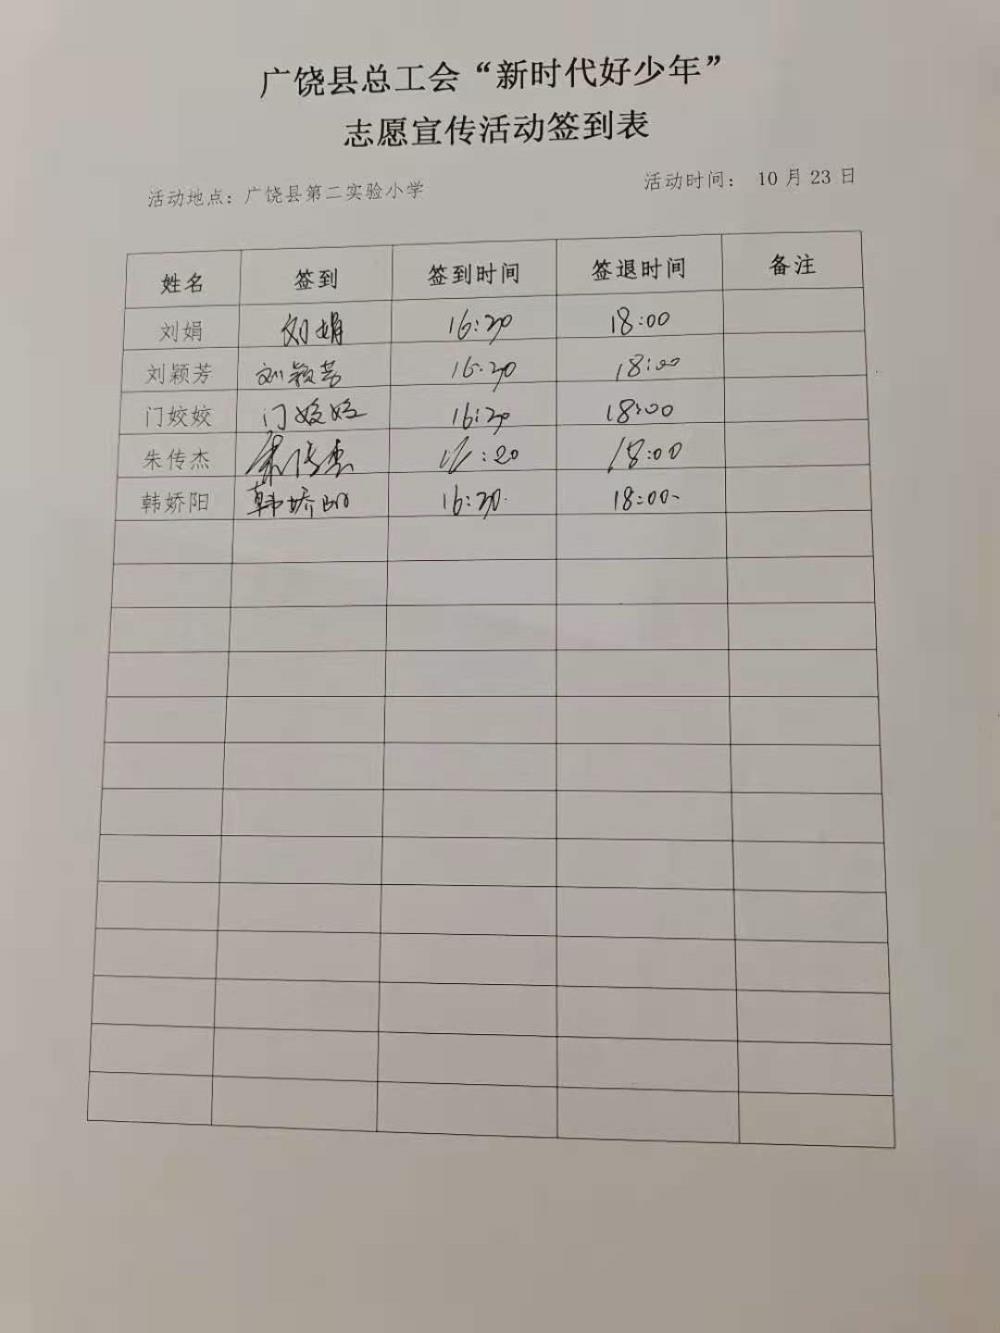 广饶县总工会“新时代好少年”
志愿宣传活动签到表
活动地点：广饶县第二实验小学 活动时间： 10月23日
姓名 签到 签到时间 签退时间 备注
刘娟 刘娟 16:20 18:00
刘颖芳 刘颖芳 16:20 18:00
门姣姣 门姣姣 16:20 18:00
朱传杰 朱传杰 16:20 18:00
韩娇阳 韩娇阳 16:20 18:00